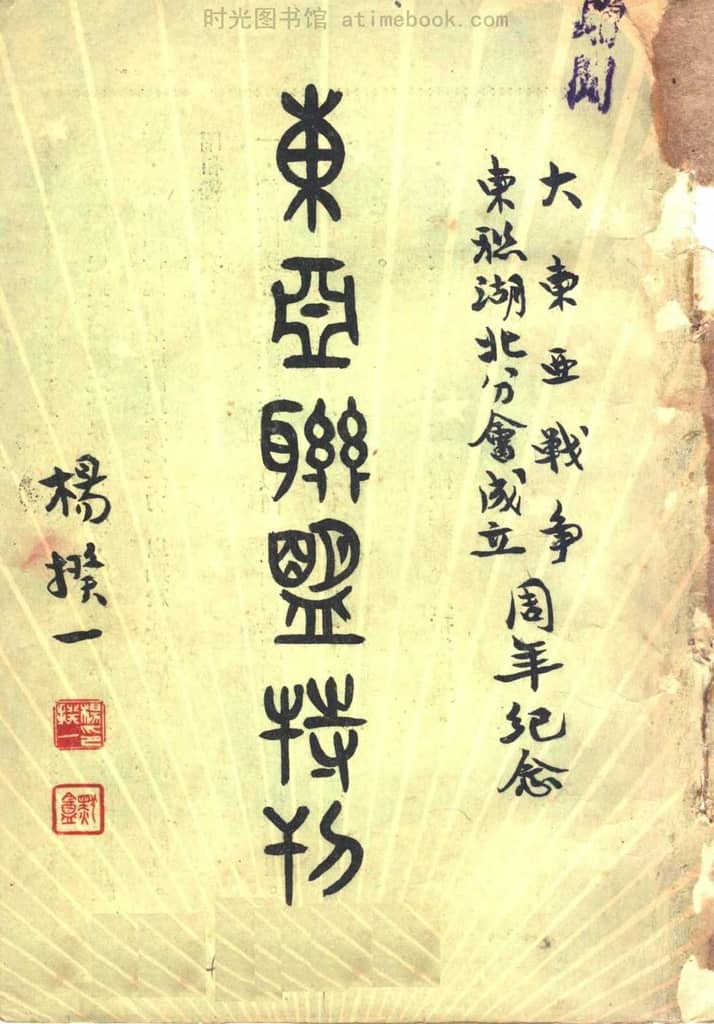 时光图书馆 atimebook.com
大東亜戰争
東聯湖北分會成立
周年纪念
東亞聯盟特刊
楊揆一